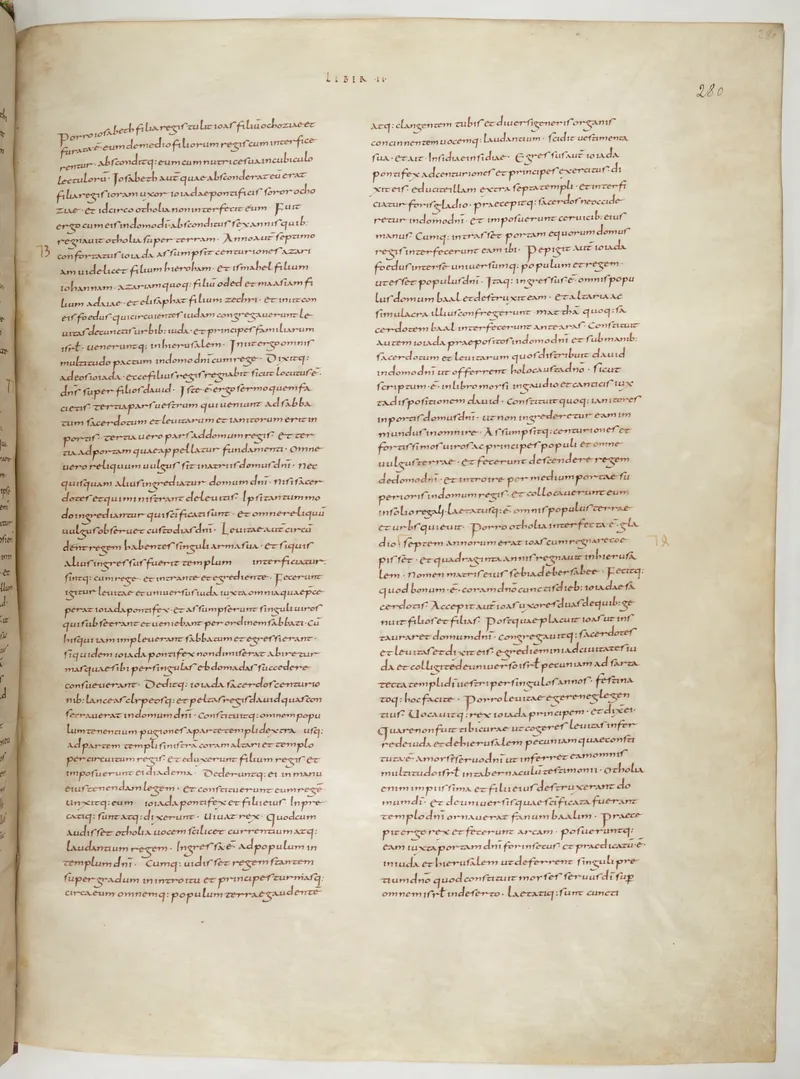 LIBER II
280
Porro iosabeth filia regis tulit ioas filiū ochoziae et
furata ē eum de medio filiorum regis cum interfice
rentur · Absconditq: eum cum nutrice sua in cubiculo
lectulorū · Iosabeth aut̄ quae absconderat eū erat
filia regis ioram uxor ioiadae pontificis soror ocho
ziae · et idcirco otholia non interfecit eum · Fuit
ergo cum eis in domo dī absconditus sex annis quib:
regnauit otholia super terram · Anno aut̄ septimo
confortatus ioiada assumpsit centuriones azari
am uidelicet filium hieroham · et ismahel filium
iohannam · azariam quoq: filiū oded et maasiam fi
lium adaiae · et elisaphat filium zechri · et iniit con
eis foedus qui circueuntes iudam congregauerunt le
uitas de cunctis urbib: iuda · et principes familiarum
isrl̄ · ueneruntq: in hierusalem · Iniit ergo omnis
multitudo pactum in domo dn̄i cum rege · Dixitq:
ad eos ioiada · ecce filius regis regnabit sicut locutus ē
dn̄s super filios dauid · Iste ē ergo sermo quem fa
cietis · tertia pars uestrum qui ueniunt ad sabba
tum sacerdotum et leuitarum et ianitorum erit in
portis · tertia uero pars ad domum regis · et ter
tia ad portam quae appellatur fundamenti · Omne
uero reliquum uulgus sit in atriis domus dn̄i · nec
quisquam alius ingrediatur domum dn̄i · nisi sacer
dotes et qui ministrant de leuitis · Ipsi tantummo
do ingrediantur qui sc̄ificati sunt · et omne reliquū
uulgus obseruet custodias dn̄i · Leuitae aut̄ circū
dent regem habentes singuli arma sua · et si quis
alius ingressus fuerit templum interficiatur ·
sintq: cum rege · et intrante et egrediente · Fecerunt
igitur leuitae et uniuersus iuda iuxta omnia quae p̄ce
perat ioiada pontifex · et assumpserunt singuli uiros
qui sub se erant et ueniebant per ordinem sabbati · Cū
his qui iam impleuerant sabbatum et egressi erant ·
siquidem ioiada pontifex non dimiserat abire tur
mas quae sibi per singulas ebdomadas succedere
consueuerant · Deditq: ioiada sacerdos centurio
nib: lanceas clypeosq: et peltas regis dauid quas con
secrauerat in domum dn̄i · Constituitq: omnem popu
lum tenentium pugiones a parte templi dextra · usq:
ad partem templi sinistrā coram altari et templo
per circuitum regis · et eduxerunt filium regis et
imposuerunt ei diadema · Dederuntq: ei in manu
eius tenendam legem · et constituerunt eum regē
unxitq: eum ioiada pontifex et filii eius · Inpre
catiq: sunt atq: dixerunt · Uiuat rex · Quod cum
audisset otholia uocem scilicet currentium atq:
laudantium regem · Ingressa ē ad populum in
templum dn̄i · Cumq: uidisset regem stantem
super gradum in introitu et principes turmasq:
circa eum omnemq: populum terrae gaudente
atq: clangentem tubis et diuersi generis organis
concinnentem uocemq: laudantium · scidit uestimenta
sua · et ait · Insidiae insidiae · Egressus aut̄ ioiada
pontifex ad centuriones et principes exercitus di
xit eis · educite illam extra septa templi · et interfi
ciatur foris gladio · praecepitq: sacerdos ne occide
retur in domo dn̄i · et imposuerunt ceruicib: eius
manus · Cumq: intrasset portam equorum domus
regis interfecerunt eam ibi · Pepigit aut̄ ioiada
foedus inter se uniuersumq: populum et regem ·
ut esset populus dn̄i · Itaq: ingressus ē omnis popu
lus domum baal et destruxit eam · et altaria ac
simulacra illius confregerunt · mathā quoq: sa
cerdotem baal interfecerunt ante aras · Constituit
autem ioiada praepositos in domo dn̄i et sub manib:
sacerdotum et leuitarum quos distribuit dauid
in domo dn̄i ut offerrent holocausta dn̄o · sicut
scriptum ē in libro mosi in gaudio et canticis iux
ta dispositionem dauid · Constituit quoq: ianitores
in portis domus dn̄i · ut non ingrederetur eam in
mundus in omni re · Assumpsitq: centuriones et
fortissimos uiros ac principes populi et omne
uulgus terrae · et fecerunt descendere regem
de domo dn̄i · et introire per medium portae su
perioris in domum regis · et collocauerunt eum
in solio regali · Laetatusq: ē omnis populus terrae
et urbs quieuit · Porro otholia interfecta ē gla
dio · septem annorum erat ioas cum regnare coe
pisset · et quadraginta annis regnauit in hierusa
lem · nomen matris eius sebia de bersabee · Fecitq:
quod bonum ē coram dn̄o cunctis dieb: ioiadae sa
cerdotis · Accepit aut̄ ioas uxores duas de quib: ge
nuit filios et filias · Post quae placuit ioas ut ins
tauraret domum dn̄i · congregauitq: sacerdotes
et leuitas et dixit eis · egredimini ad ciuitates iu
da et colligite de uniuerso isrl̄ pecuniam ad sarta
tecta templi dī uestri per singulos annos · festina
toq: hoc facite · Porro leuitae egere neglegen
tius · Uocauitq: rex ioiada principem · et dixit ei
Quare non fuit tibi curae ut cogeres leuitas infer
re de iuda et de hierusalem pecuniam quae consti
tuta ē a mose seruo dn̄i ut inferret eam omnis
multitudo isrl̄ in tabernaculū testimonii · Otholia
enim impiissima et filii eius destruxerant do
mum dī · et de uniuersis quae sc̄ificata fuerant
templo dn̄i ornauerat fanum baalim · Praece
pit ergo rex et fecerunt arcam · posueruntq:
eam iuxta portam dn̄i forinsecus et praedicatū ē
in iuda et hierusalem ut deferrent singuli pre
tium dn̄o quod constituit moyses seruus dī sup̄
omnem isrl̄ in deserto · Laetatiq: sunt cuncti